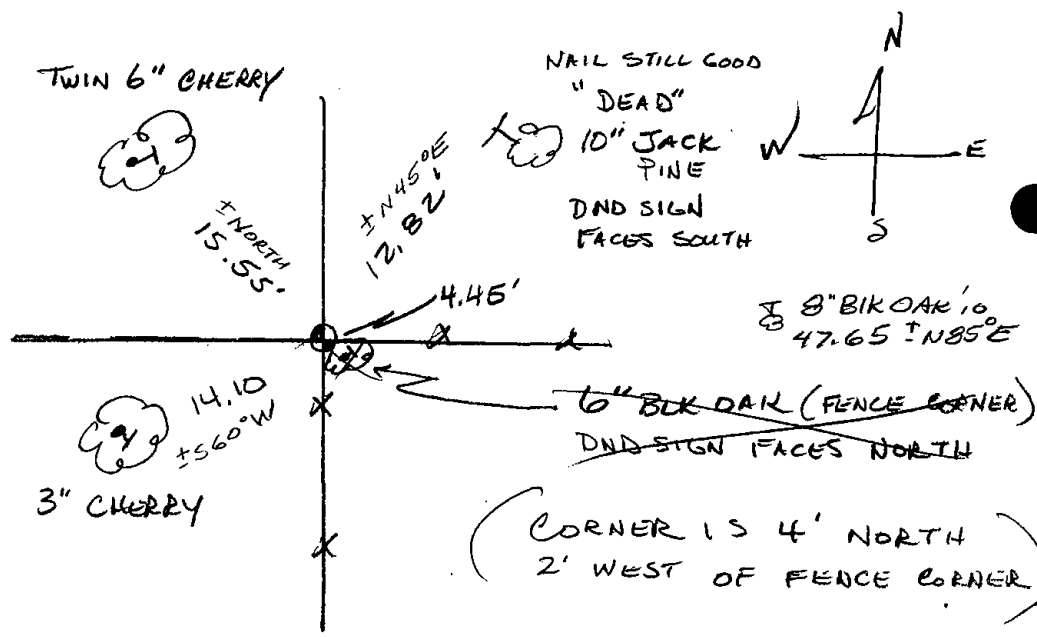 TWIN 6" CHERRY
NAIL STILL GOOD
"DEAD"
10" JACK
PINE
DND SIGN
FACES SOUTH
N
W
E
S
± NORTH
15.55'
± N45°E
12.82'
4.45'
8" BLK OAK
47.65 ± N85°E
14.10
± S60°W
3" CHERRY
6" BLK OAK (FENCE CORNER)
DND SIGN FACES NORTH
(CORNER IS 4' NORTH
2' WEST OF FENCE CORNER)